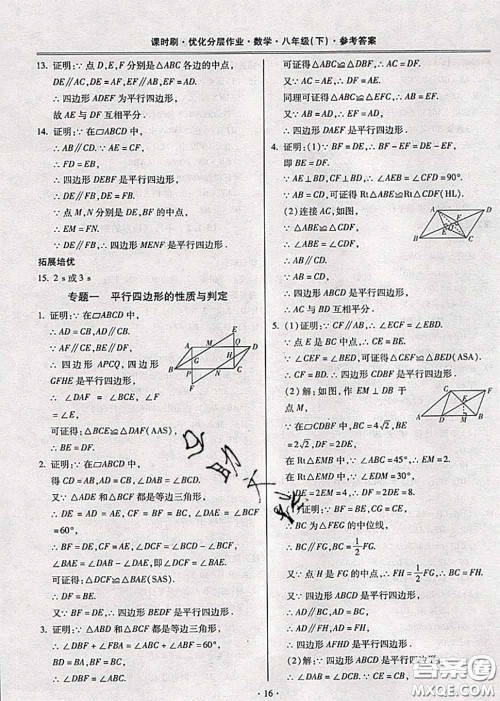 课时刷·优化分层作业·数学·八年级(下)·参考答案
13. 证明:∵点 D,E,F 分别是△ABC 各边的中点,
DE∥AC,DE=AF,EF∥AB.
∴四边形 ADEF 为平行四边形.
故 AE 与 DF 互相平分.
14. 证明:∵在▱ABCD 中,
∴AB∥CD. ∵AE=CF,
∴FD=EB,
∴四边形 DEBF 是平行四边形,
∴DE∥FB,DE=FB.
∵点 M,N 分别是 DE,BF 的中点,
∴EM=FN.
∵DE∥FB,∴四边形 MENF 是平行四边形.
拓展培优
15. 2 s 或 3 s
专题一 平行四边形的性质与判定
1. 证明:∵在▱ABCD 中,
∴AD=CB,AD∥CB.
又∵AF∥CE,BE∥DF,
∴四边形 APCQ,四边形
GFHE 是平行四边形.
∴∠DAF=∠BCE,∠F
=∠E,
可证得:△BCE≌△DAF(AAS).
∴BE=DF.
2. 证明:∵在▱ABCD 中,
∴CD=AB,AD=CB,∠DAB=∠BCD.
又∵△ADE 和△BCF 都是等边三角形,
∴DE=BF,AE=CF,∠DAE=∠BCF
=60°,
∴BF=DE=CF=AE,
∵∠DCF=∠BCD-∠BCF,
∠BAE=∠DAB-∠DAE,
∴∠DCF=∠BAE.
可证得:△DCF≌△BAE(SAS).
∴DF=BE.
∴四边形 BEDF 是平行四边形.
3. 证明:∵△ABD 和△BCF 都是等边三角形,
∴∠DBF+∠FBA=∠ABC+∠ABF=60°,
BD=BA,BF=BC.
∴∠DBF=∠ABC.
可证得△ABC≌△DBF,∴AC=DF.
又∵AC=AE,∴DF=AE.
同理可证得△ABC≌△EFC,
∴AB=EF.
又∵AB=AD,∴AD=EF.
∴四边形 DAEF 是平行四边形.
4. 证明:(1)∵BF=DE,∴BF-EF=DE-EF,
即 BE=DF.
∵AE⊥BD,CF⊥BD,∴∠AEB=∠CFD=90°.
∵AB=CD,∴可证得 Rt△ABE≌Rt△CDF(HL).
(2)连接 AC,如图,
∵△ABE≌△CDF,
∴∠ABE=∠CDF,
∴AB∥CD.
∵AB=CD,
∴四边形 ABCD 是平行四边形,∴AO=CO.
5. 证明:(1)∵四边形 ABCD 是平行四边形,
∴CF∥AB,∴∠ECF=∠EBD.
∵点 E 是 BC 的中点,∴CE=BE.
∵∠CEF=∠BED,∴△CEF≌△BED(ASA).
∴CF=BD.∴四边形 CDBF 是平行四边形.
(2)解:如图,作 EM⊥DB 于
点 M,
∵四边形 CDBF 是平行四
边形,BC=4√2,∴BE
=2√2,DF=2DE.
在 Rt△EMB 中,∠ABC=45°,∴EM=2.
在 Rt△EMD 中,∵∠EDM=30°,
∴DE=2EM=4,∴DF=2DE=8.
证明:∵BF=BE,CG=CE,
∴BC 为△FEG 的中位线,
∴BC∥FG,BC=1/2FG.
又∵点 H 是 FG 的中点,∴FH=1/2FG,∴BC=FH.
又∵四边形 ABCD 是平行四边形,
∴AD∥BC,AD=BC,
∴AD∥FH,AD=FH,
∴四边形 AFHD 是平行四边形.
(2)解:∵四边形 ABCD 是平行四边形,
∴∠DCB=∠BAE.
·16·
答案圈
MXQE.COM